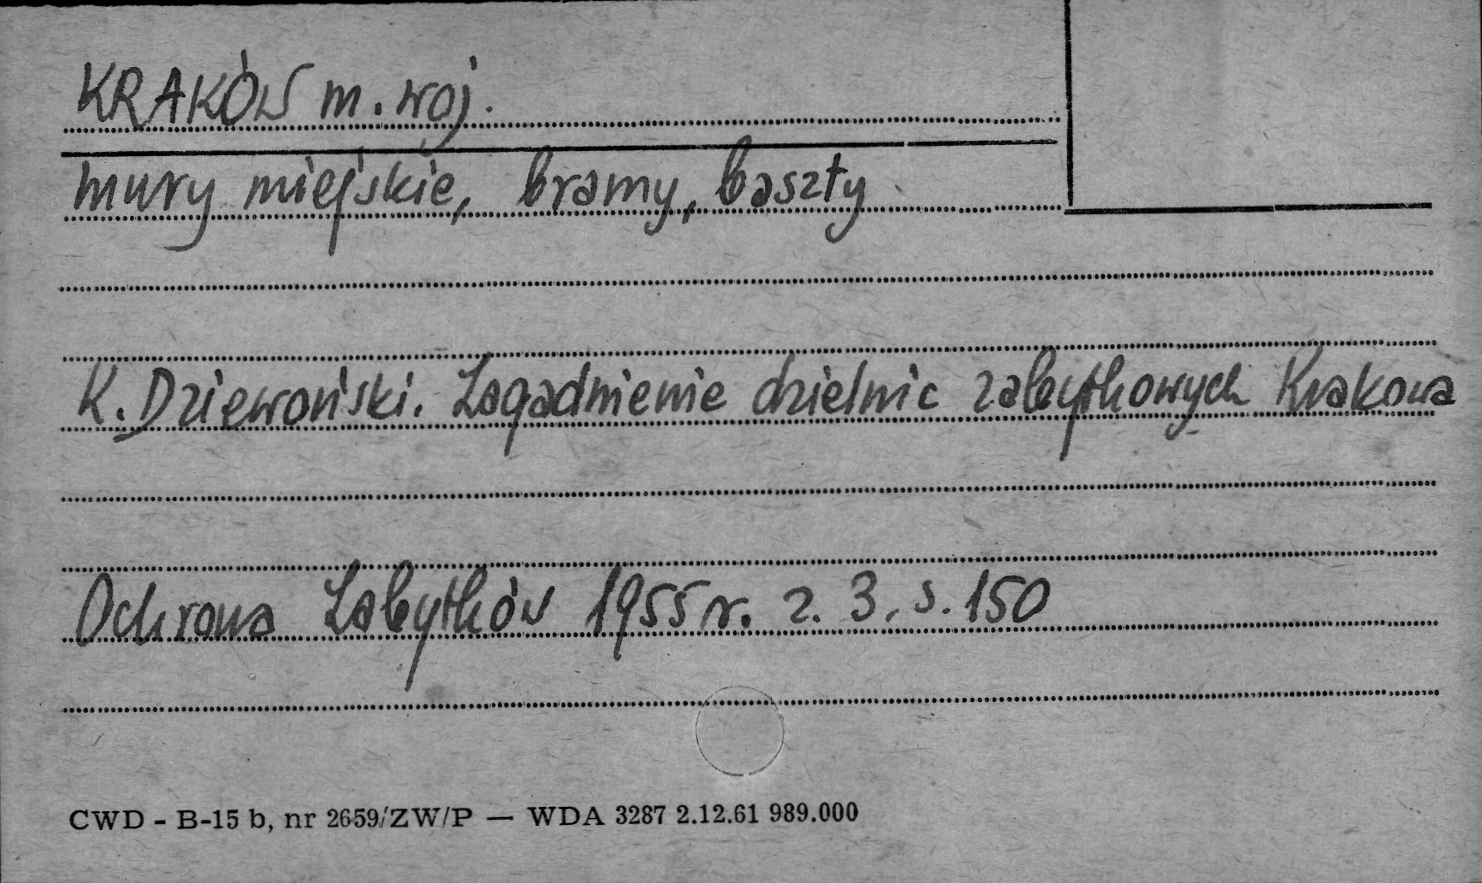 KRAKÓW m. woj.
mury miejskie, bramy, baszty
K. Dziewoński. Zagadnienie dzielnic zabytkowych Krakowa
Ochrona Zabytków 1955 r. z. 3. s. 150
CWD - B-15 b, nr 2659/ZW/P — WDA 3287 2.12.61 989.000